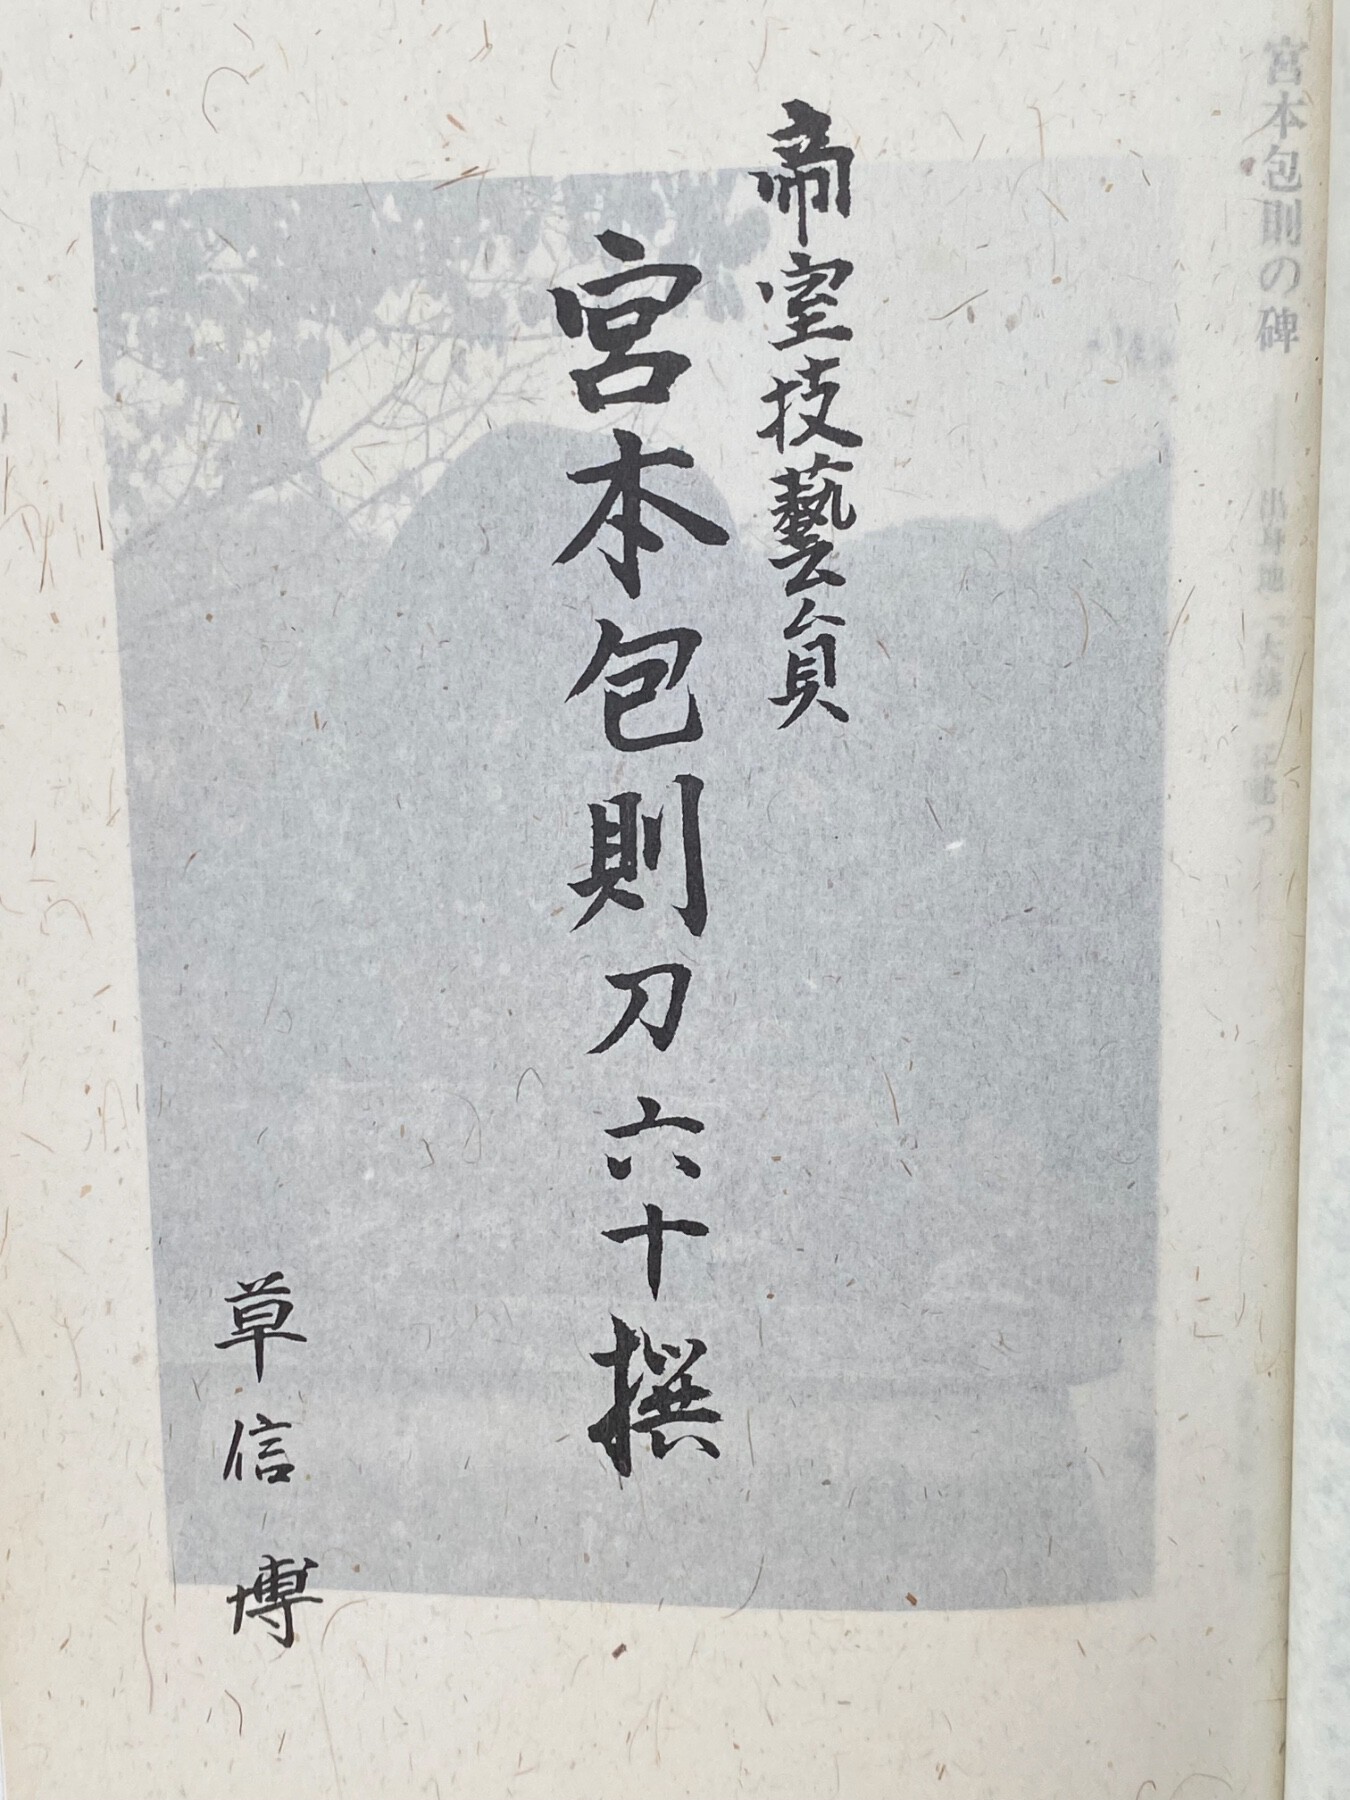 帝室技藝員
宮本包則刀六十撰
草信博
宮本包則の碑
出身地「大